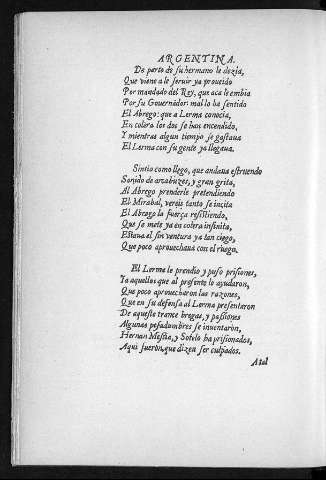 ARGENTINA.
De parte de su hermano le dezia,
Que viene a le seruir ya proueido
Por mandado del Rey, que aca le embia
Por su Gouernador: mal lo ha sentido
El Abrego: que a Lerma conocia,
En colera los dos se han encendido,
Y mientras algun tiempo se gastaua
El Lerma con su gente ya llegaua.

Sintio como llego, que andaua estruendo
Sonido de arcabuzes, y gran grita,
Al Abrego prenderle pretendiendo
El Mirabal, vereis tanto se incita
El Abrego la fuerça resistiendo,
Que se mete ya en colera infinita,
Estaua al sin ventura ya tan ciego,
Que poco aprouechaua con el ruego.

El Lerma le prendio y puso prisiones,
Ya aquellos que al presente lo ayudaron,
Que poco aprouecharon las razones,
Que en su defensa al Lerma presentaron
De aqueste trance bregas, y passiones
Algunas pesadumbres se inuentaron,
Hernan Mexia, y Sotelo ha prisionados,
Aqui fueron, que dizen ser culpados.
Atal